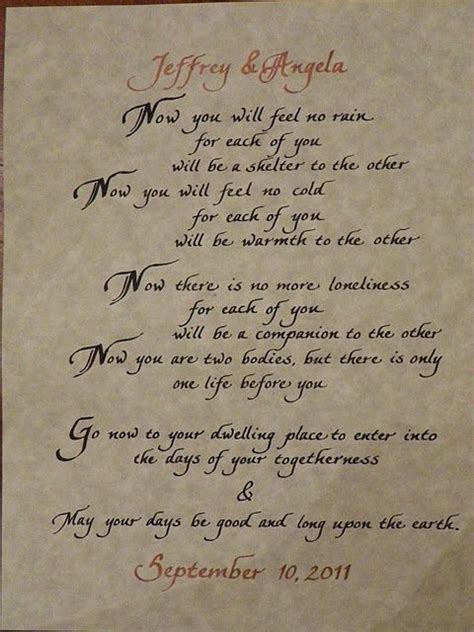 Jeffrey & Angela
Now you will feel no rain
for each of you
will be a shelter to the other
Now you will feel no cold
for each of you
will be warmth to the other
Now there is no more loneliness
for each of you
will be a companion to the other
Now you are two bodies, but there is only
one life before you
Go now to your dwelling place to enter into
the days of your togetherness
&
May your days be good and long upon the earth.
September 10, 2011